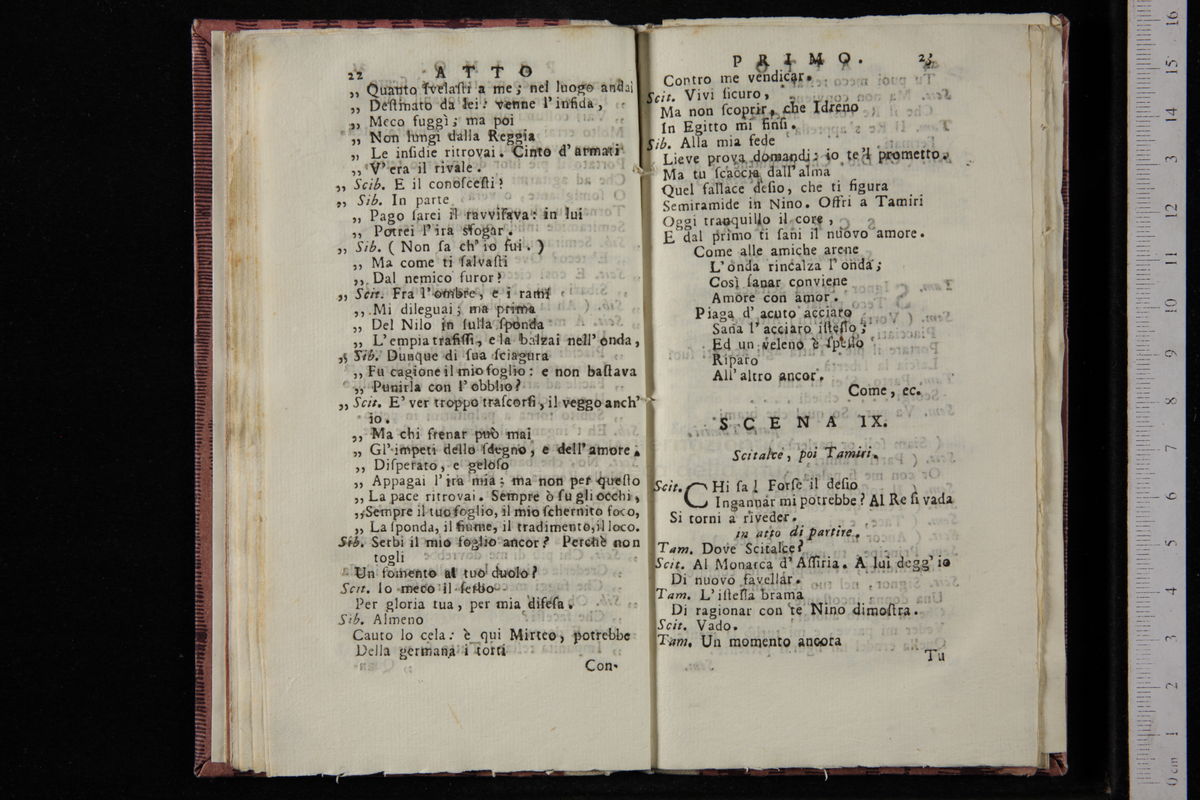 22 ATTO
„ Quanto ſvelaſti a me; nel luogo andai
„ Deſtinato da lei: venne l'infida,
„ Meco fuggì; ma poi
„ Non lungi dalla Reggia
„ Le inſidie ritrovai. Cinto d'armati
„ V'era il rivale.
„ Scib. E il conoſceſti?
„ Sib. In parte
„ Pago ſarei il ravviſava: in lui
„ Potrei l'ira sfogar.
„ Sib. (Non ſa ch'io fui.)
„ Ma come ti ſalvaſti
„ Dal nemico furor?
„ Scit. Fra l'ombre, e i rami
„ Mi dileguai; ma prima
„ Del Nilo in ſulla ſponda
„ L'empia trafiſſi, e la balzai nell'onda,
„ Sib. Dunque di ſua ſciagura
„ Fu cagione il mio foglio: e non baſtava
„ Punirla con l'obblio?
„ Scit. E' ver troppo traſcorſi, il veggo anch'
io.
„ Ma chi frenar può mai
„ Gl'impeti dello ſdegno, e dell'amore.
„ Diſperato, e geloſo
„ Appagai l'ira mia; ma non per queſto
„ La pace ritrovai. Sempre ò ſu gli occhi,
„ Sempre il tuo foglio, il mio ſchernito foco,
„ La ſponda, il fiume, il tradimento, il loco.
Sib. Serbi il mio foglio ancor? Perchè non
togli
Un fomento al tuo duolo?
Scit. Io meco il ſerbo
Per gloria tua, per mia difeſa.
Sib. Almeno
Cauto lo cela: è qui Mirteo, potrebbe
Della germana i torti
Con-
PRIMO. 23
Contro me vendicar.
Scit. Vivi ſicuro,
Ma non ſcoprir, che Idreno
In Egitto mi finſi.
Sib. Alla mia fede
Lieve prova domandi: io te'l prometto.
Ma tu ſcaccia dall'alma
Quel fallace deſio, che ti figura
Semiramide in Nino. Offri a Tamiri
Oggi tranquillo il core,
E dal primo ti ſani il nuovo amore.
Come alle amiche arene
L'onda rincalza l'onda;
Così ſanar conviene
Amore con amor.
Piaga d'acuto acciaro
Sana l'acciaro iſteſſo;
Ed un veleno è ſpeſſo
Riparo
All'altro ancor.
Come, ec.
SCENA IX.
Scitalce, poi Tamiri.
Scit. CHi ſa! Forſe il deſio
Ingannar mi potrebbe? Al Re ſi vada
Si torni a riveder.
in atto di partire.
Tam. Dove Scitalce?
Scit. Al Monarca d'Aſſiria. A lui degg'io
Di nuovo favellar.
Tam. L'iſteſſa brama
Di ragionar con te Nino dimoſtra.
Scit. Vado.
Tam. Un momento ancora
Tu
16
15
14
13
12
11
10
9
8
7
6
5
4
3
2
1
0 cm